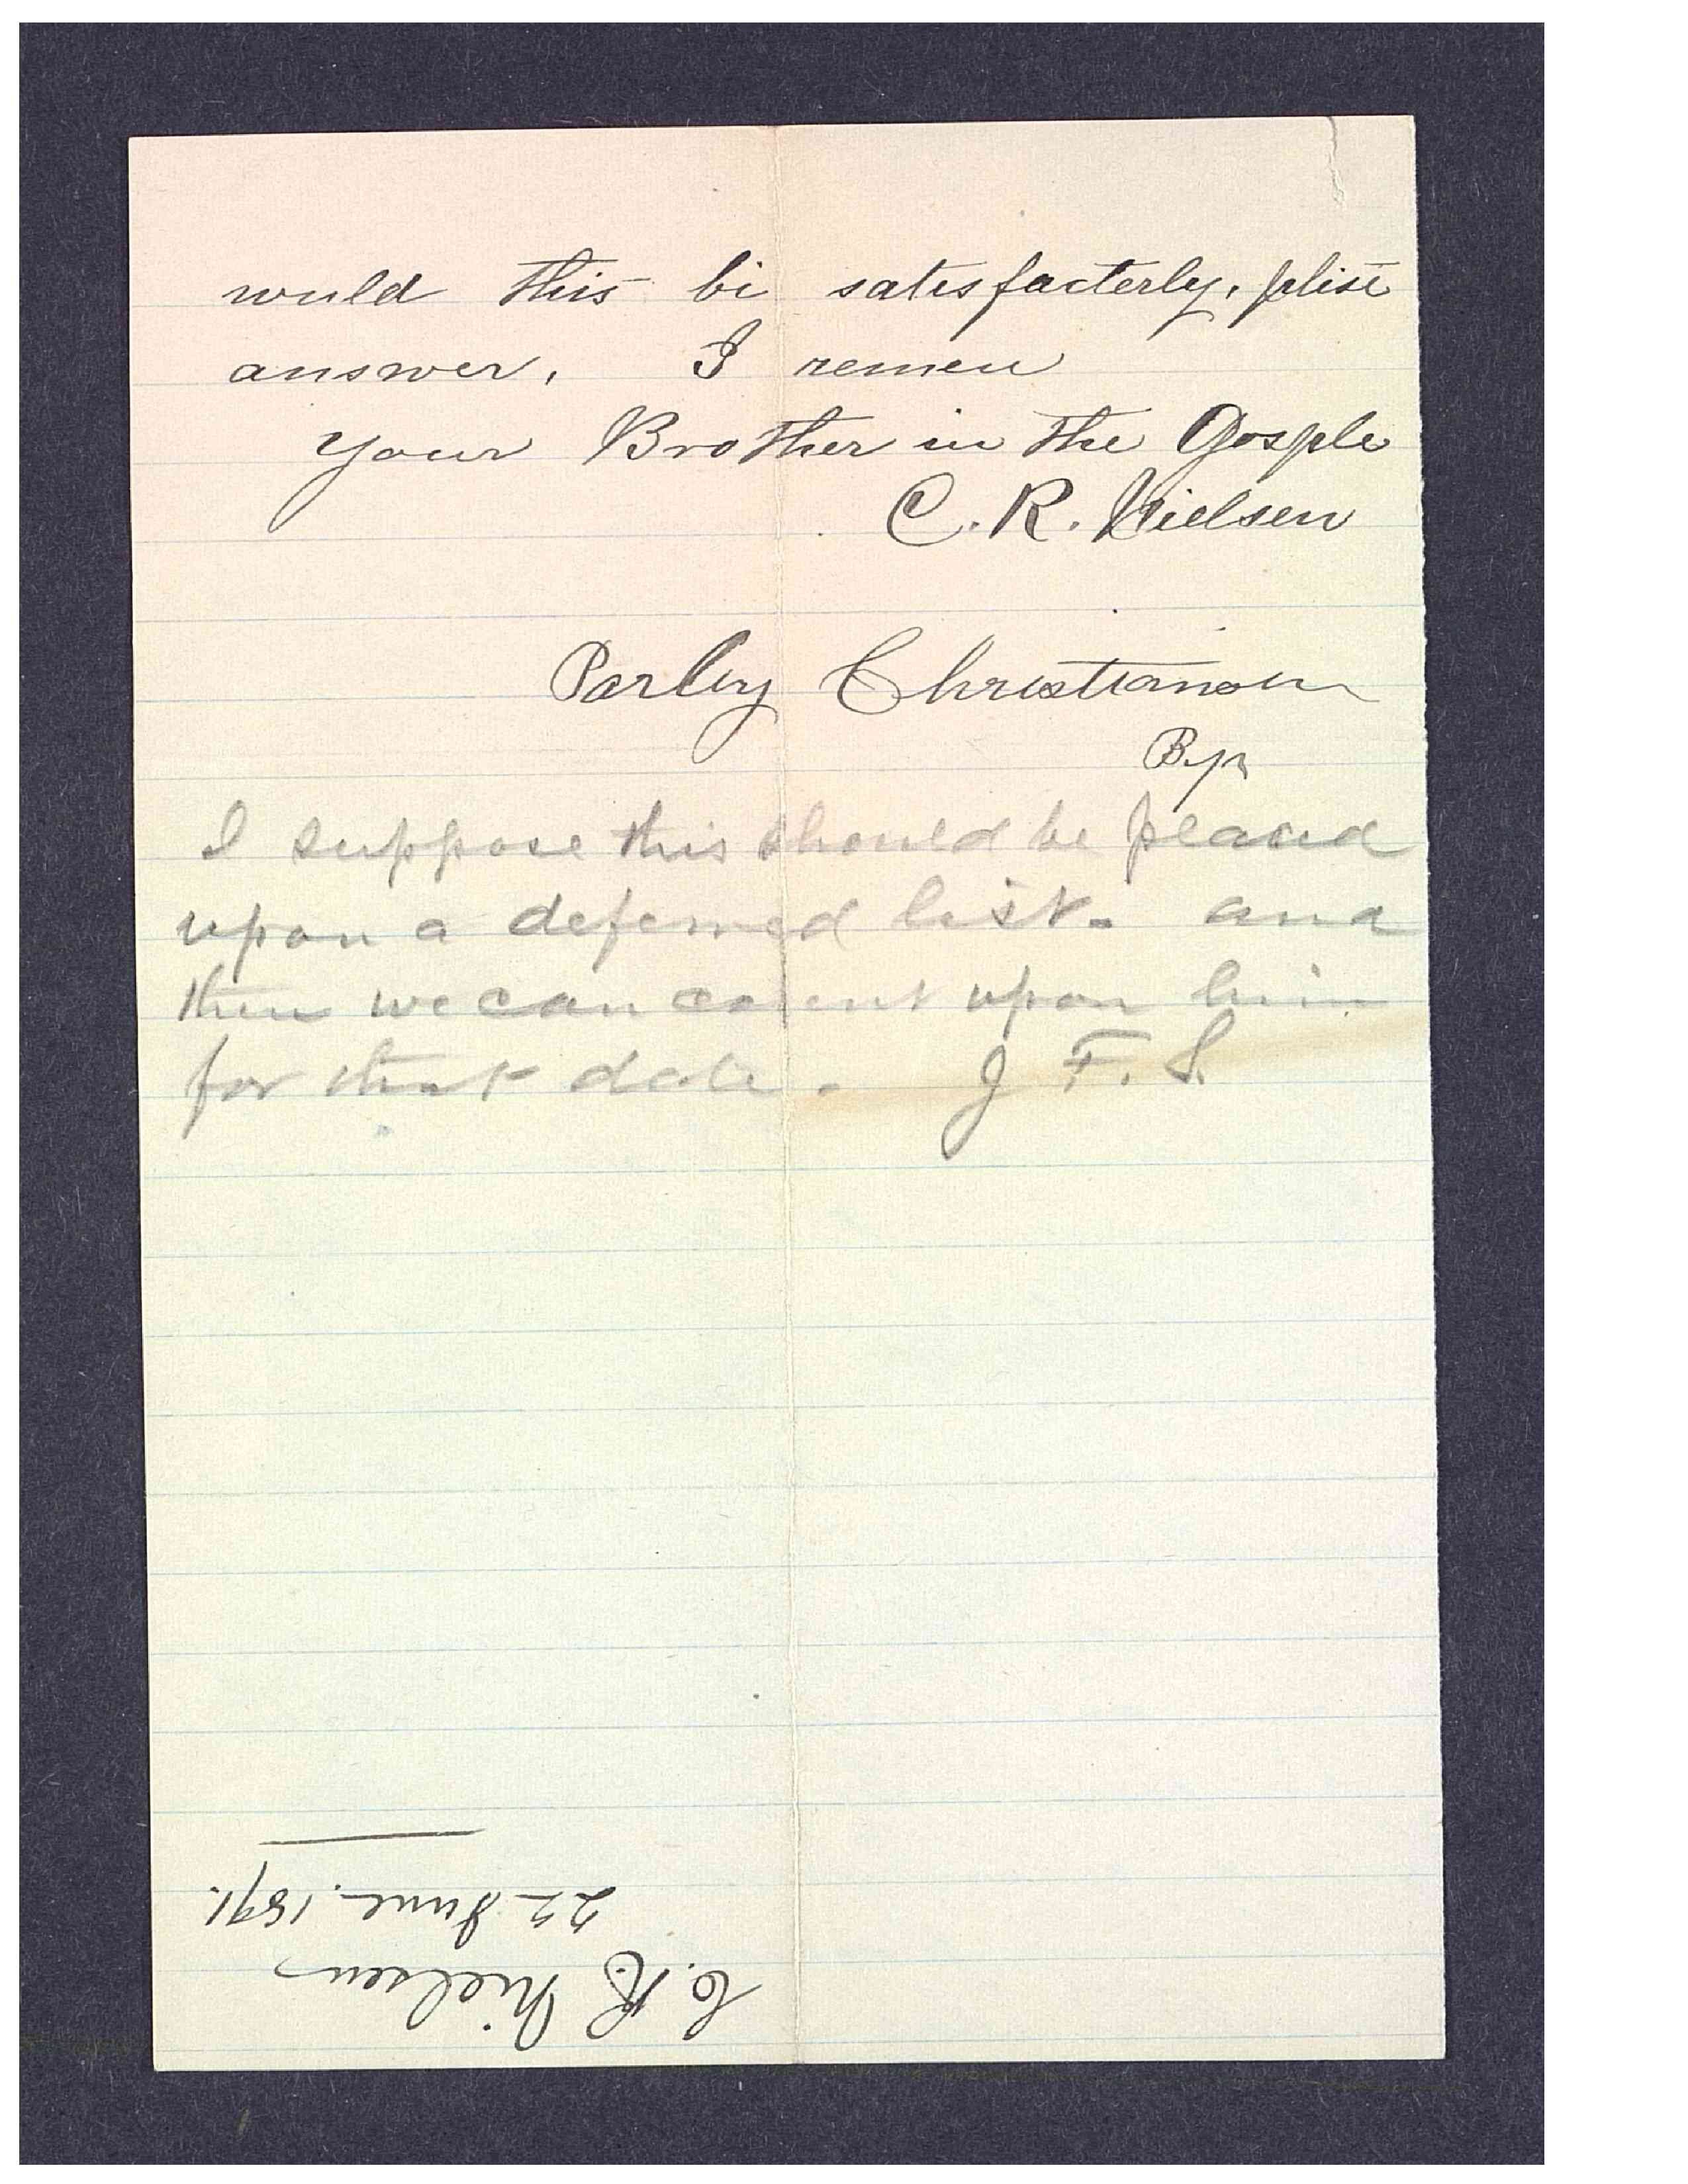 wuld this bi satisfacterly, plise
answer, I remen
your Brother in the Gosple
C. R. Nielsen
Parley Christianson
Bp
I suppose this should be placed
upon a deferred list. and
then we can count upon him
for that date. J F. S.
C. R. Nielsen
22 June. 1891.